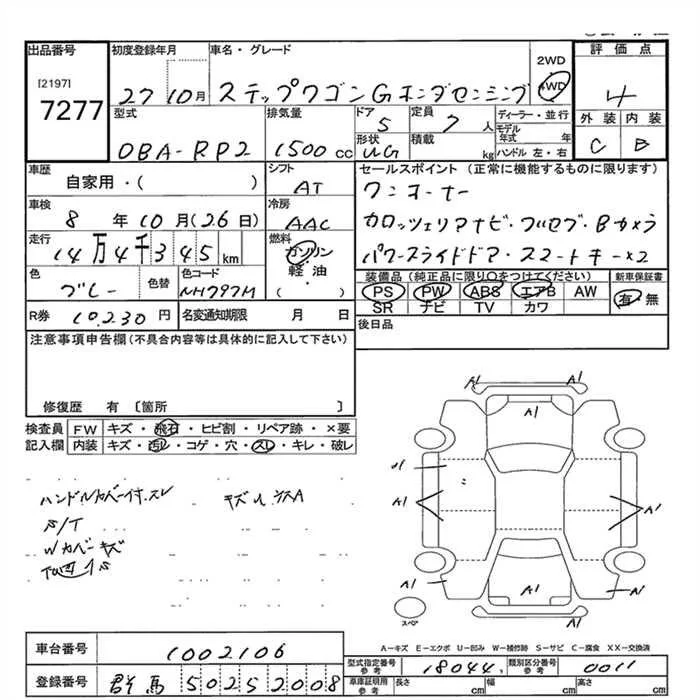 出品番号
[2197]
7277
初度登録年月
27 10月
車名・グレード
ステップワゴンGホンダセンシング
2WD
4WD
評価点
4
外装 内装
C B
型式
DBA-RP2
排気量
1500 cc
ドア
5
定員
7 人
形状
WG
積載
kg
ディーラー・並行
モデル年式 年
ハンドル 左・右
車歴
自家用・( )
シフト
AT
セールスポイント (正常に機能するものに限ります)
ワンオーナー
カロッツェリアナビ・フルセグ・Bカメラ
パワースライドドア・スマートキー×2
車検
8 年 10 月 (26 日)
冷房
AAC
走行
14万4千345 km
燃料
ガソリン
・
軽・油
( )
色
グレー
色替
色コード
NH797M
装備品 (純正品に限り○をつけてください)
PS PW ABS エアB AW
SR ナビ TV カワ
新車保証書
有・無
R券
10,230 円
名変通知期限 月 日
後日品
注意事項申告欄 (不具合内容等は具体的に記入して下さい)
修復歴 有 〔箇所 〕
検査員
記入欄
FW キズ・飛石・ヒビ割・リペア跡・×要
内装 キズ・汚レ・コゲ・穴・スレ・キレ・破レ
ハンドルカバー付、スレ
S/T
Wカバーキズ
A1
A1
A1
A1
U1
A1
A1
A1
A1
A1
スペア
A-キズ E-エクボ U-凹み W-補修跡 S-サビ C-腐食 XX-交換済
車台番号
1002106
登録番号
群馬 502 52008
型式指定番号
参考
18044
類別区分番号
参考
0011
車庫証明用
参考
長さ cm
幅 cm
高さ cm